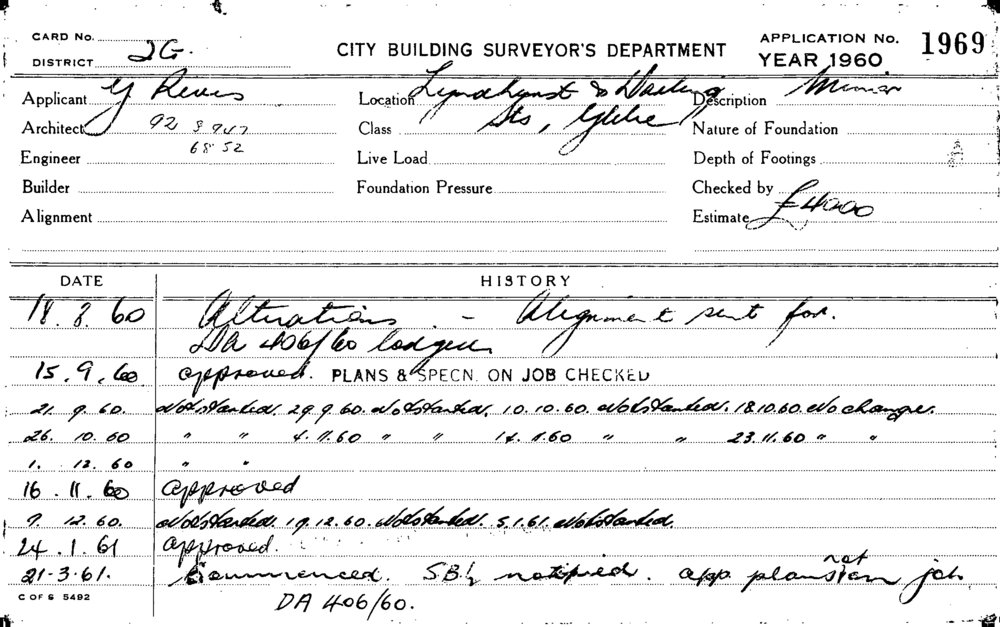 CARD No.
DISTRICT 2G.
CITY BUILDING SURVEYOR'S DEPARTMENT
APPLICATION No. 1969
YEAR 1960
Applicant G Location Lyndhurst & Darling Description Minor
Architect 92 8947 Class Sts, Glebe Nature of Foundation
6852
Engineer Live Load Depth of Footings
Builder Foundation Pressure Checked by
Alignment Estimate £4000
DATE HISTORY
18.8.60 Alterations. - Alignment sent for.
DA 406/60 lodged
15.9.60 approved. PLANS & SPECN. ON JOB CHECKED
21.9.60. Not started. 29.9.60. Not started. 10.10.60. Not started. 18.10.60. No change.
26.10.60 " " 4.11.60 " " 14.11.60 " " 23.11.60 " "
1.12.60 " "
16.11.60 approved
9.12.60. Not started. 19.12.60. Not started. 5.1.61. Not started.
24.1.61 approved.
21-3-61. Commenced. notified. app. plans not on job
C OF S 5492
DA 406/60.